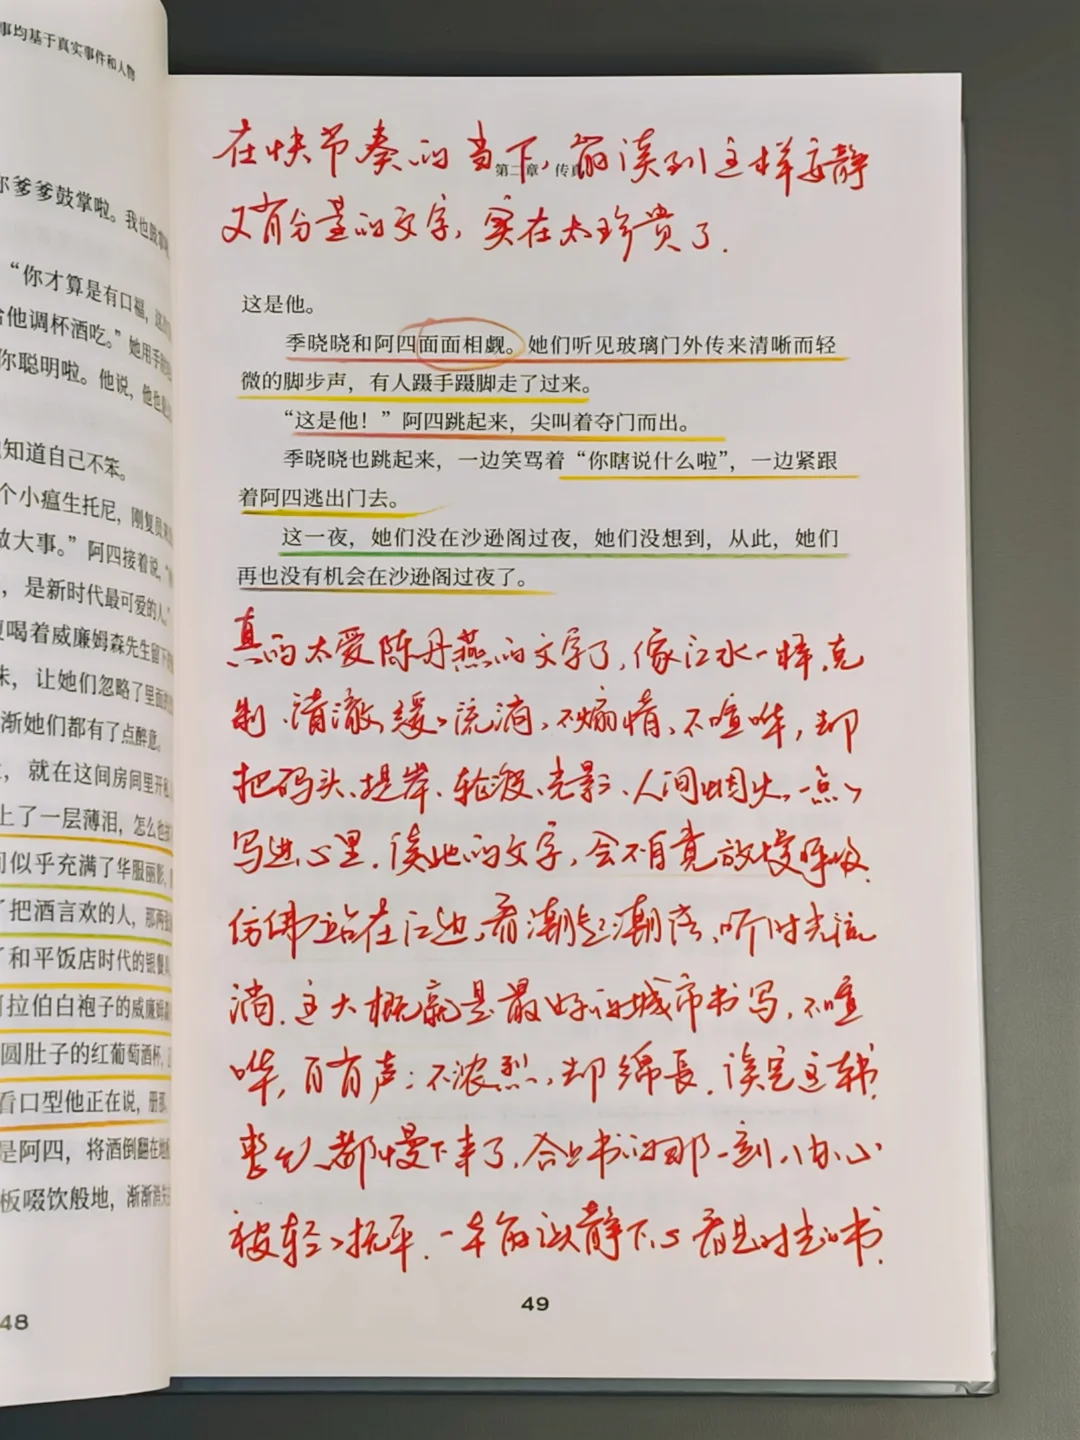 事均基于真实事件和人物
你爹爹鼓掌啦。我也鼓掌
“你才算是有口福，这
给他调杯酒吃。”她用手
你聪明啦。他说，他也
知道自己不笨。
个小瘟生托尼，刚复员
放大事。”阿四接着说，
，是新时代最可爱的人。”
喝着威廉姆森先生留下
味，让她们忽略了里面
渐她们都有了点醉意。
，就在这间房间里开
上了一层薄泪，怎么也
间似乎充满了华服丽影，
了把酒言欢的人，那两
了和平饭店时代的银餐具
阿拉伯白袍子的威廉姆森
圆肚子的红葡萄酒杯，
看口型他正在说，册那，
是阿四，将酒倒翻在地
板啜饮般地，渐渐消失
48
在快节奏的当下，能读到这样安静
第二章 传真
又有分量的文字，实在太珍贵了.
这是他。
季晓晓和阿四面面相觑。她们听见玻璃门外传来清晰而轻
微的脚步声，有人蹑手蹑脚走了过来。
“这是他！”阿四跳起来，尖叫着夺门而出。
季晓晓也跳起来，一边笑骂着“你瞎说什么啦”，一边紧跟
着阿四逃出门去。
这一夜，她们没在沙逊阁过夜，她们没想到，从此，她们
再也没有机会在沙逊阁过夜了。
真的太爱陈丹燕的文字了，像江水一样，克
制、清澈、缓缓流淌，不煽情、不喧哗，却
把码头、堤岸、轮渡、光影、人间烟火，一点点
写进心里．读她的文字，会不自觉放慢呼吸．
仿佛站在江边，看潮起潮落、听时光流
淌．这大概就是最好的城市书写，不喧
哗，自有声；不浓烈，却绵長．读完这本书，
整个人都慢下来了，合上书的那一刻，内心
被轻轻抚平．一本能让人静下心看見时光的书．
49